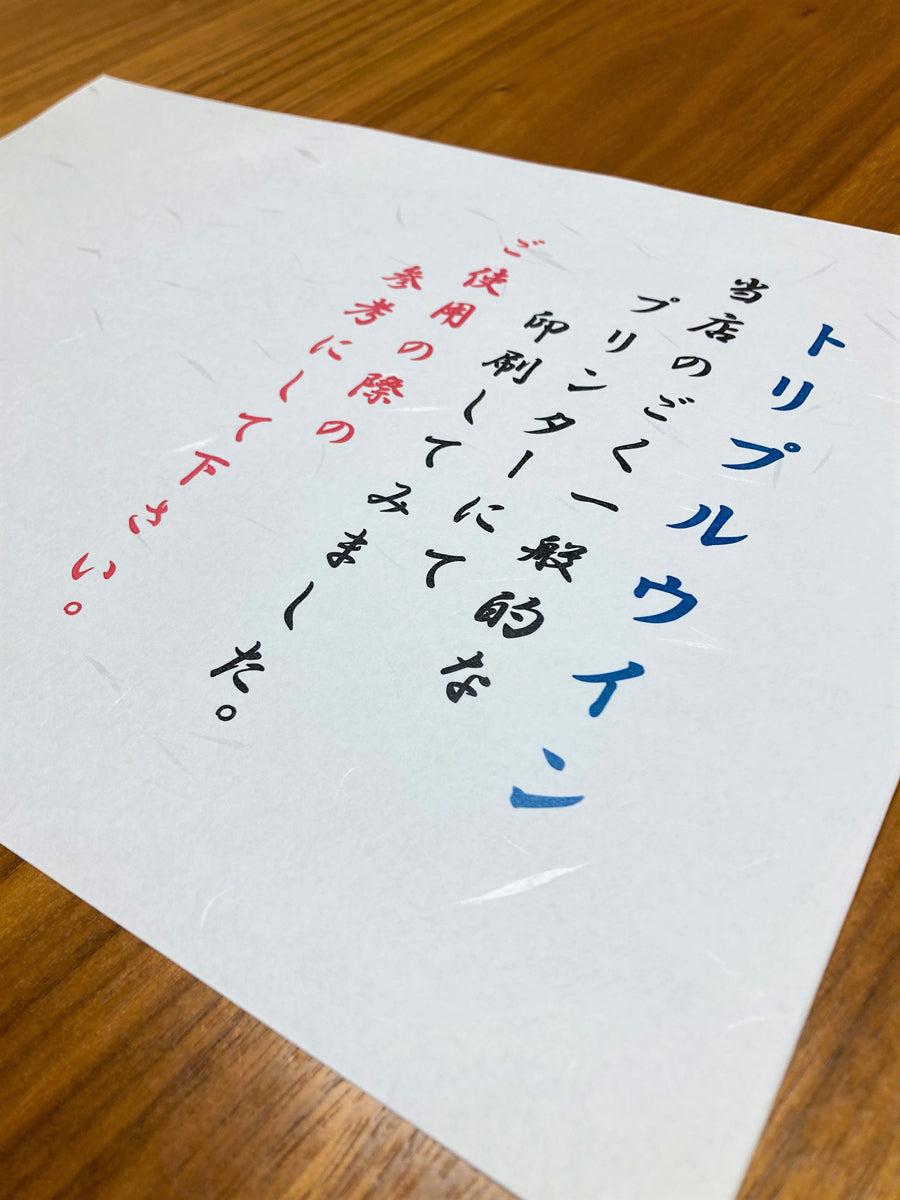 トリプルウイン
当店のごく一般的な
プリンターにて
印刷してみました。
ご使用の際の
参考にして下さい。